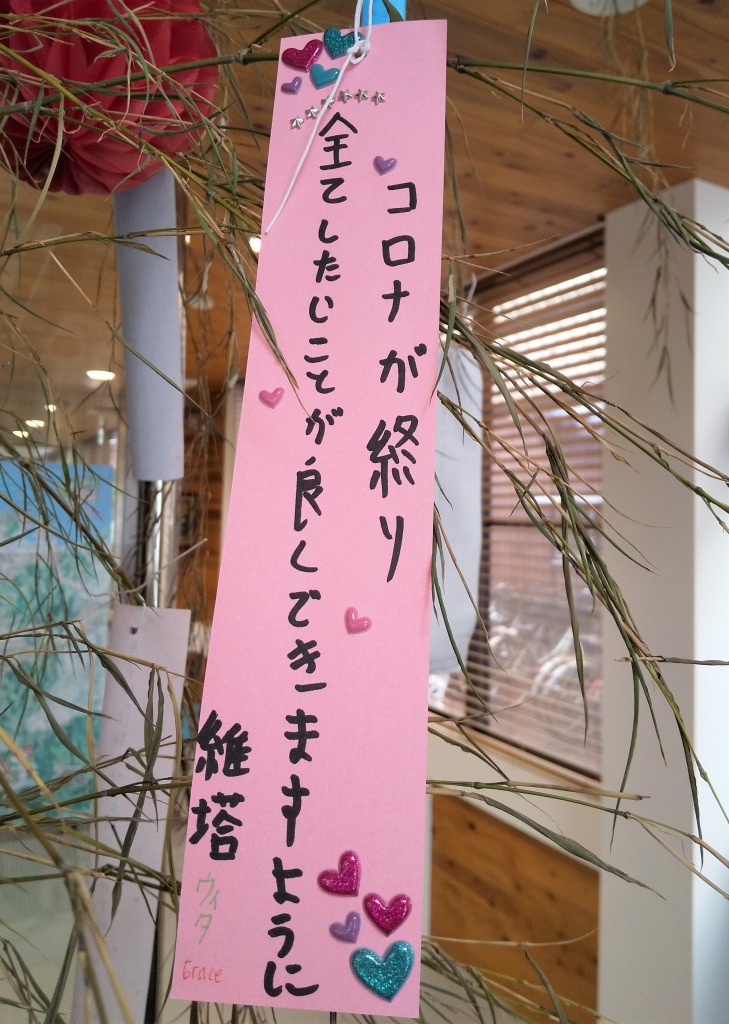 コロナが終り
全てしたいことが良くできますように
維塔
ウィタ
Grace